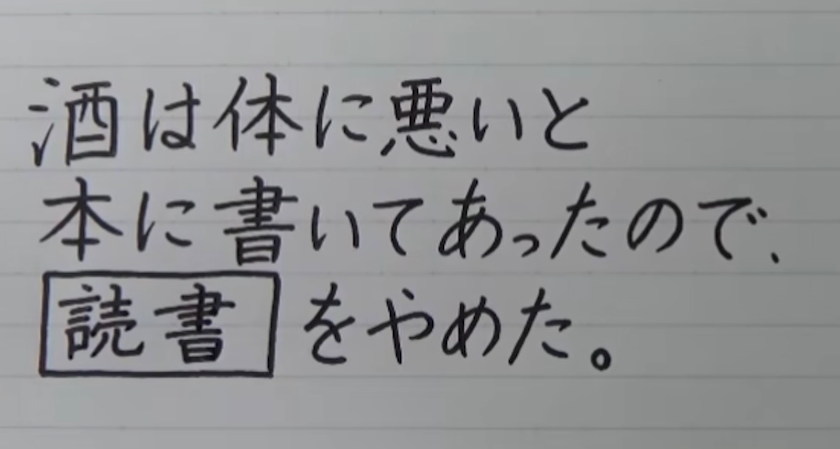 酒は体に悪いと
本に書いてあったので、
読書をやめた。